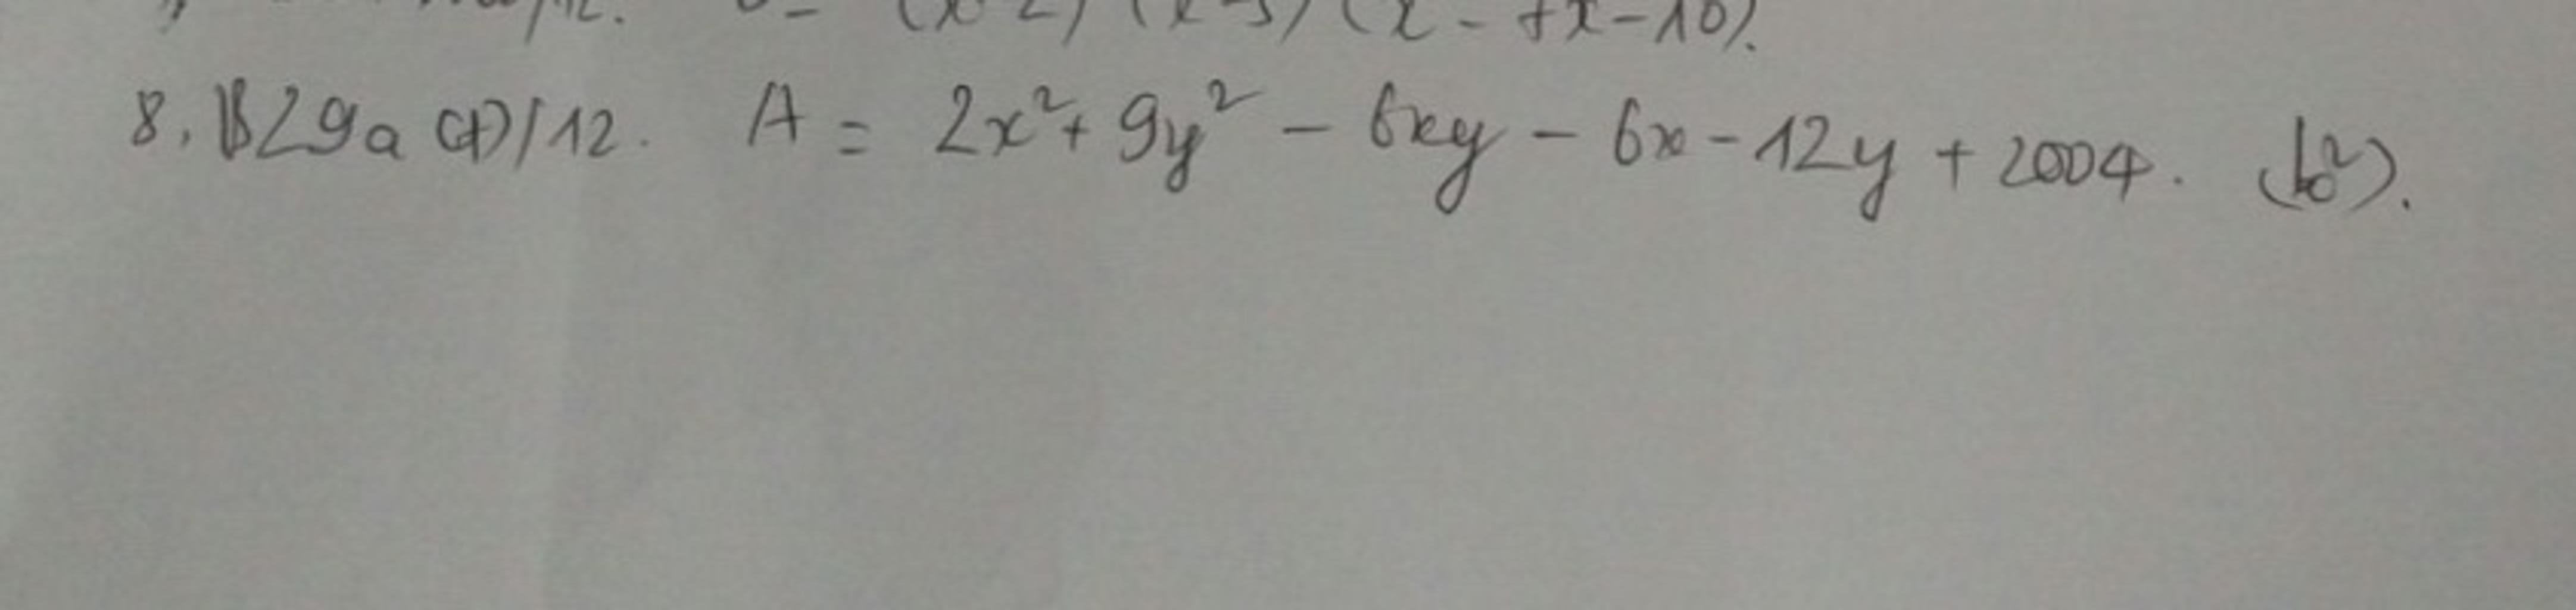 /12. = (x-2) (x-5) (x - 7x-10).
8. B29a (A)/12. A = 2x²+ 9y² - 6xy - 6x - 12y + 2004. (b²).